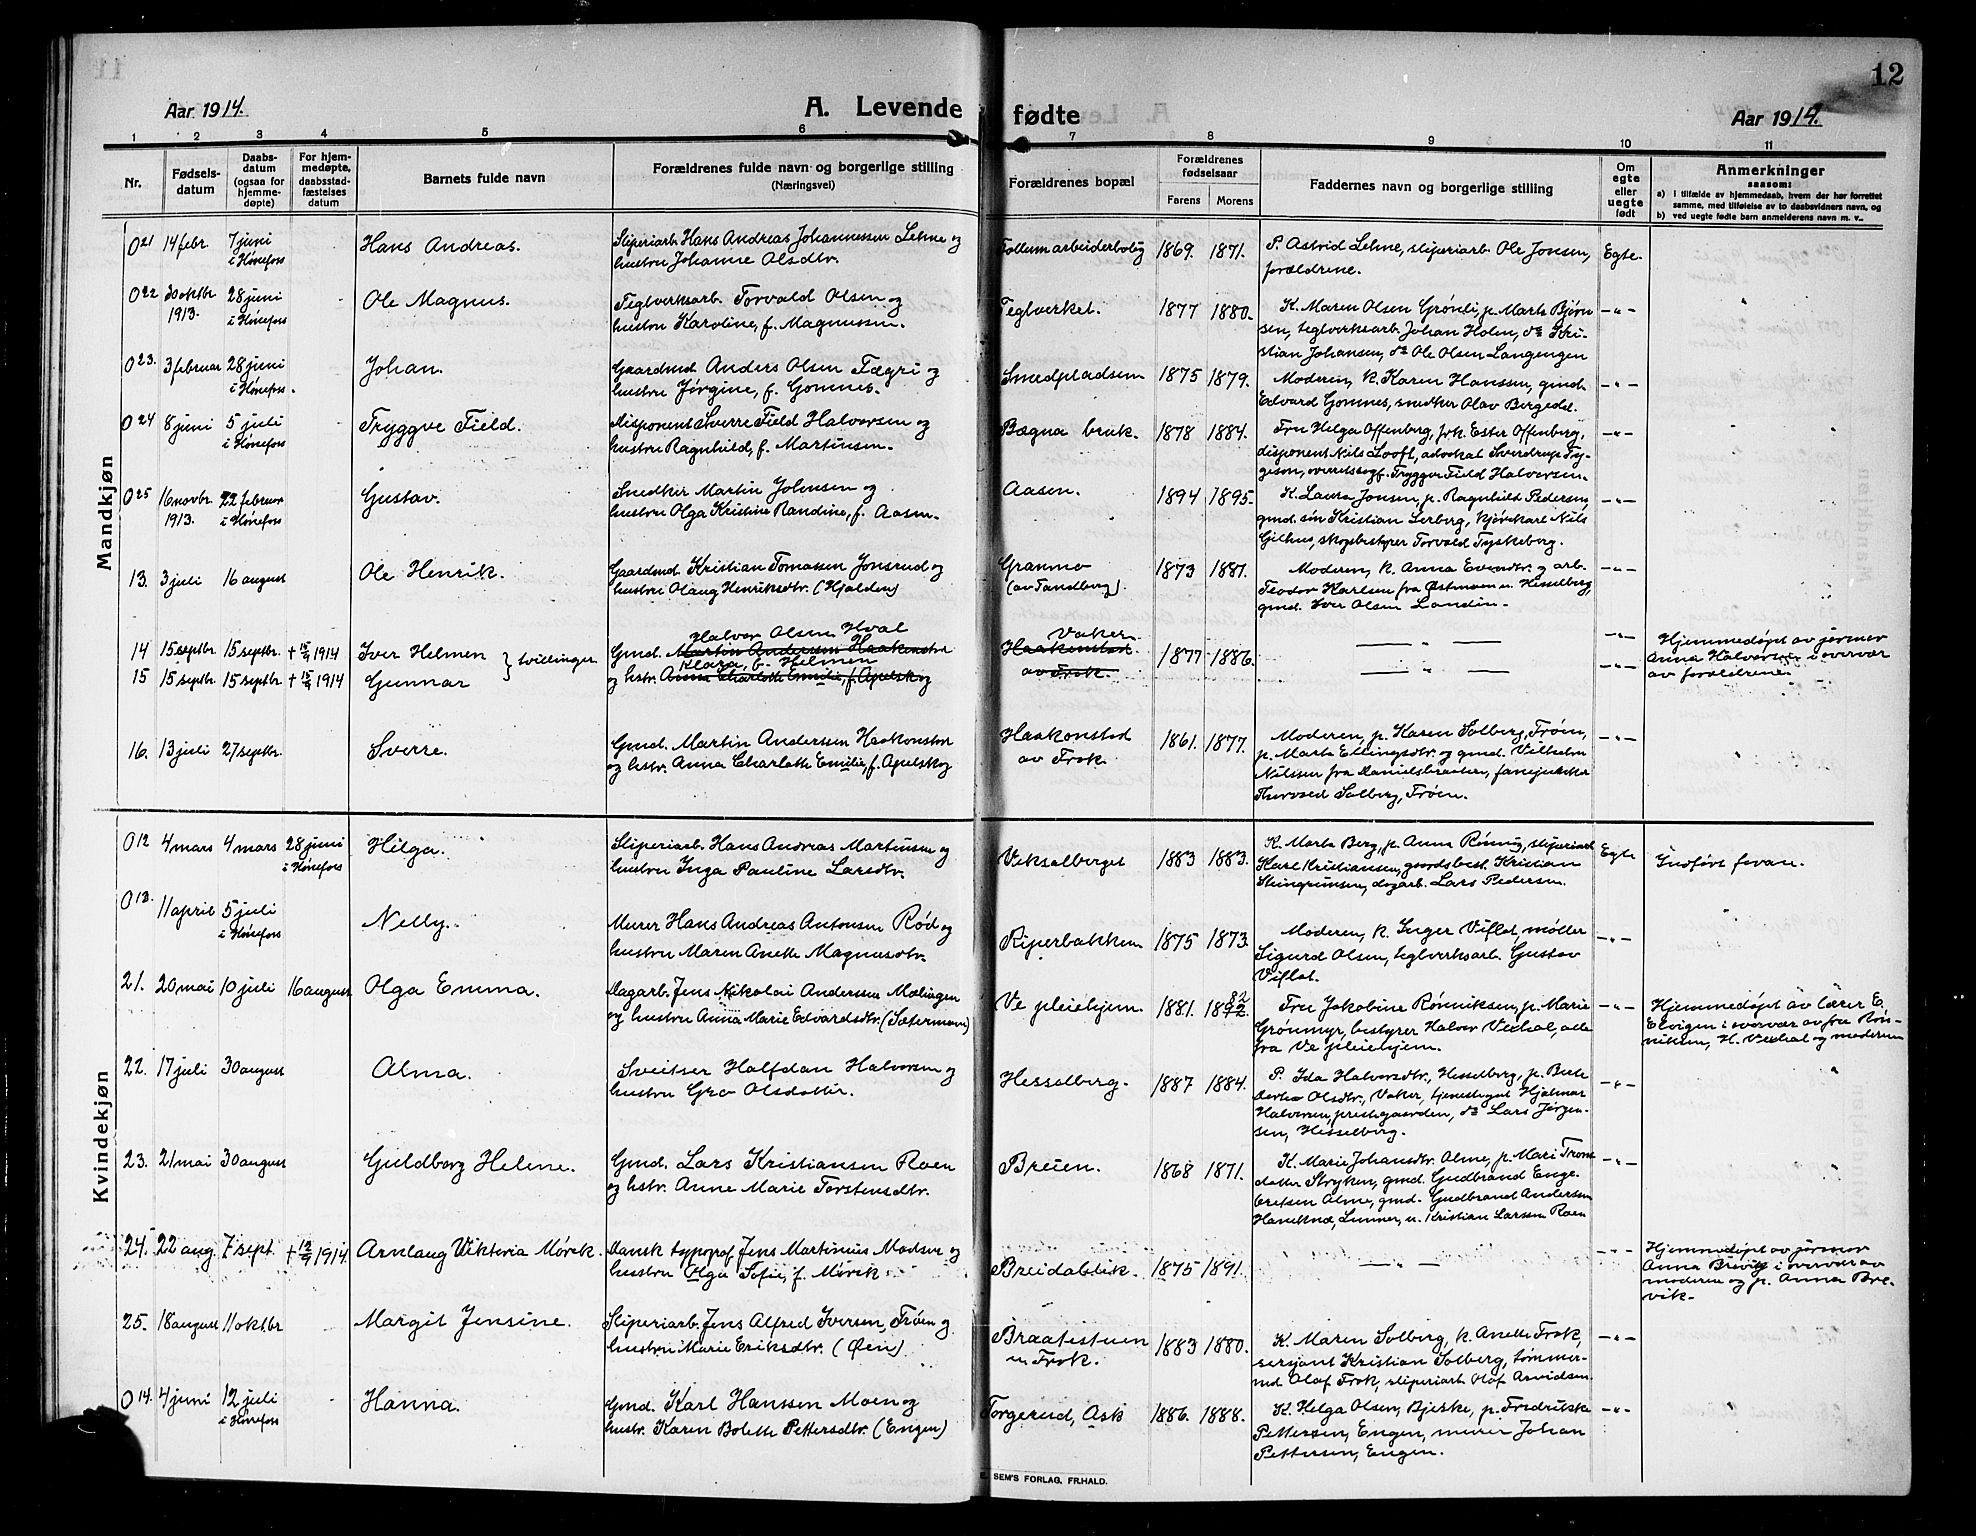 12
Aar 1914.
A. Levende fødte
Aar 1914.
1 2 3 4 5 6 7 8 9 10 11
Nr.
Fødselsdatum
Daabsdatum (ogsaa for hjemmedøpte)
For hjemmedøpte, daabsstadfæstelses datum
Barnets fulde navn
Forældrenes fulde navn og borgerlige stilling (Næringsvei)
Forældrenes bopæl
Forældrenes fødselsaar
Farens Morens
Faddernes navn og borgerlige stilling
Om egte eller uegte født
Anmerkninger
saasom:
a) i tilfælde av hjemmedaab, hvem der har forrettet samme, med tilføielse av to daabsvidners navn, og
b) ved uegte fødte barn anmelderens navn m. v..
Mandkjøn
021 14 febr. 7 juni i Hönefoss Hans Andreas. Sliperiarb. Hans Andreas Johannessen Lehne og
hustru Johanne Olsdtr. Follum arbeiderbolig 1869. 1871. P. Astrid Lehne, sliperiarb. Ole Jonsen,
forældrene. Egte.
022 30 oktbr. 1913. 28 juni i Hönefoss Ole Magnus. Teglverksarb. Torvald Olsen og
hustru Karoline, f. Magnussen. Teglverket. 1877 1880. K. Maren Olsen Grønli, p. Marta Bjørn
sen, teglverksarb. Johan Holen, do Kri-
stian Johansen, do Ole Olsen Langengen -"-
023. 3 februar 28 juni i Hönefoss. Johan. Gaardmd. Anders Olsen Fægri og
hustru Jørgine, f. Gomnes. Smedpladsen 1875 1879. Moderen, k. Karen Hanssen, gmd.
Edvard Gomnes, snedker Olav Bergedal. -"-
024 8 juni 5 juli i Hönefoss Tryggve Field. Disponent Sverre Field Halvorsen og
hustru Ragnhild, f. Martinsen. Bægna bruk. 1878 1884. Fru Helga Offenberg, frk. Ester Offenberg,
disponent Nils Looft, advokat Sverdrup Try-
geson, overretssagf. Tryggve Field Halvorsen. -"-
025 16 novbr. 1913. 22 februar i Hönefoss Gustav. Snedker Martin Johnsen og
hustru Olga Kristine Randine, f. Aasen. Aasen. 1894 1895. K. Laura Jonsen, p. Ragnhild Pedersen,
gmd. søn Kristian Lerberg, kjørekarl Nils
Gilhus, skogbestyrer Torvald Tyskeberg. -"-
13. 3 juli 16 august Ole Henrik. Gaardmd. Kristian Tomassen Jonsrud og
hustru Olaug Henriksdtr. (Hjalden) Granmo
(av Tandberg) 1873 1881. Moderen, k. Anna Evendtr. og arb.
Teodor Karlsen fra Østmoen u. Hesselberg,
gmd. Iver Olsen Landin. -"-
14 15 septbr. 15 septbr. + 15/9 1914 Iver Helmen } tvillinger Gmd. Halvor Olsen Hval
Martin Anderssen Haakonstad Vaker
Haakonstad 1877 1886. — " — -"- Hjemmedøpt av jormor
Anna Halvorsen i overvær
av forældrene.
15 15 septbr. 15 septbr. + 15/9 1914 Gunnar og hstr. Klara, f. Helmen
Anna Charlotte Emilie, f. Apelskog av Frok. — " — -"-
16. 13 juli 27 septbr. Sverre. Gmd. Martin Anderssen Haakonstad
og hstr. Anna Charlotte Emilie, f. Apelskog Haakonstad
av Frok 1861. 1877. Moderen, p. Karen Solberg, Frøen,
p. Marta Ellingsdtr. og gmd. Vilhelm
Nilssen fra Danielsbraaten, fanejunker
Thorvald Solberg, Frøen. -"-
Kvindekjøn
012 4 mars 4 mars 28 juni i Hönefoss Helga. Sliperiarb. Hans Andreas Martinsen og
hustru Inga Pauline Larsdtr. Veksalberget 1883 1883. K. Marta Berg, p. Anna Rønnig, sliperiarb.
Karl Kristiansen, gaardsbest. Kristian
Steingrimsen, dagarb. Lars Pedersen. Egte Indført foran.
013. 11 april 5 juli i Hönefoss Nelly. Murer Hans Andreas Antonsen Rød og
hustru Maren Anette Magnusdtr. Piperbakken 1875 1873. Moderen, k. Inger Viflat, møller
Sigurd Olsen, teglverksarb. Gustav
Viflat. -"-
21. 20 mai 10 juli 16 august Olga Emma. Dagarb. Jens Nikolai Anderssen Mælingen
og hustru Anna Marie Edvardsdtr. (Sætermoen) Ve pleiehjem. 1881. 1882. Fru Jakobine Rønniksen, p. Marie
Grønmyr, bestyrer Halvor Vexhal, alle
fra Ve pleiehjem. -"- Hjemmedøpt av lærer E.
Elvigen i overvær av fru Røn-
niksen, H. Vexhal og moderen
22. 17 juli 30 august Alma. Sveitser Halfdan Halvorsen og
hustru Gro Olsdatter. Hesselberg. 1887 1884. P. Ida Halvorsdtr., Hesselberg, p. Berte
Dortea Olsdtr., Vaker, tjenestegut Hjalmar
Halvorsen, prestegaarden, do Lars Jørgen-
sen, Hesselberg. -"-
23. 21 mai 30 august Guldborg Helene. Gmd. Lars Kristiansen Roen
og hstr. Anne Marie Torstensdtr. Breien. 1868 1871. K. Marie Johansdtr. Alme, p. Mari Trom
datter Stryken, gmd. Gudbrand Enge-
bretsen Alme, gmd. Gudbrand Andersen
Haneknæ, Lunner, u. Kristian Larssen Roen -"-
24. 22 aug. 7 sept. + 12/9 1914 Arnlaug Viktoria Mørck. Dansk typograf Jens Martinius Madsen og
hustru Olga Sofie, f. Mørck Breidablik. 1875 1891. — " — -"- Hjemmedøpt av jormor
Anna Brevik i overvær av
moderen og p. Anna Bre-
vik.
25. 18 august 11 oktbr Margit Jensine. Sliperiarb. Jens Alfred Iversen, Frøen og
hustru Marie Eriksdtr. (Øen) Braatestuen
u Frok. 1883 1880. K. Maren Solberg, k. Anette Frok,
sersjant Kristian Solberg, tømmer-
md Olaf Frok, sliperiarb Olaf Arvidsen. -"-
014. 4 juni 12 juli i Hönefoss Hanna. Gmd. Karl Hanssen Moen og
hustr. Karen Bolette Pettersdtr. (Engen) Torgerud, Ask 1886. 1888. K. Helga Olsen, Bjerke, p. Fredrikke
Pettersen, Engen, murer Johan
Pettersen, Engen. -"-
E. SEM'S FORLAG, FR.HALD.